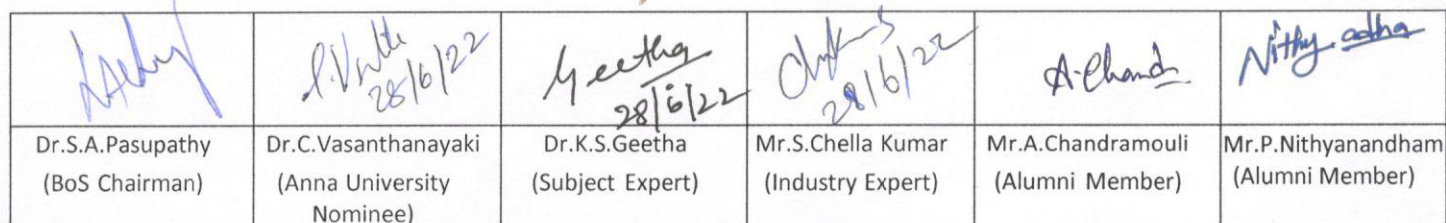 28/6/22
Geetha
28/6/22
28/6/22
A. Chand
Dr.S.A.Pasupathy
(BoS Chairman)
Dr.C.Vasanthanayaki
(Anna University
Nominee)
Dr.K.S.Geetha
(Subject Expert)
Mr.S.Chella Kumar
(Industry Expert)
Mr.A.Chandramouli
(Alumni Member)
Mr.P.Nithyanandham
(Alumni Member)